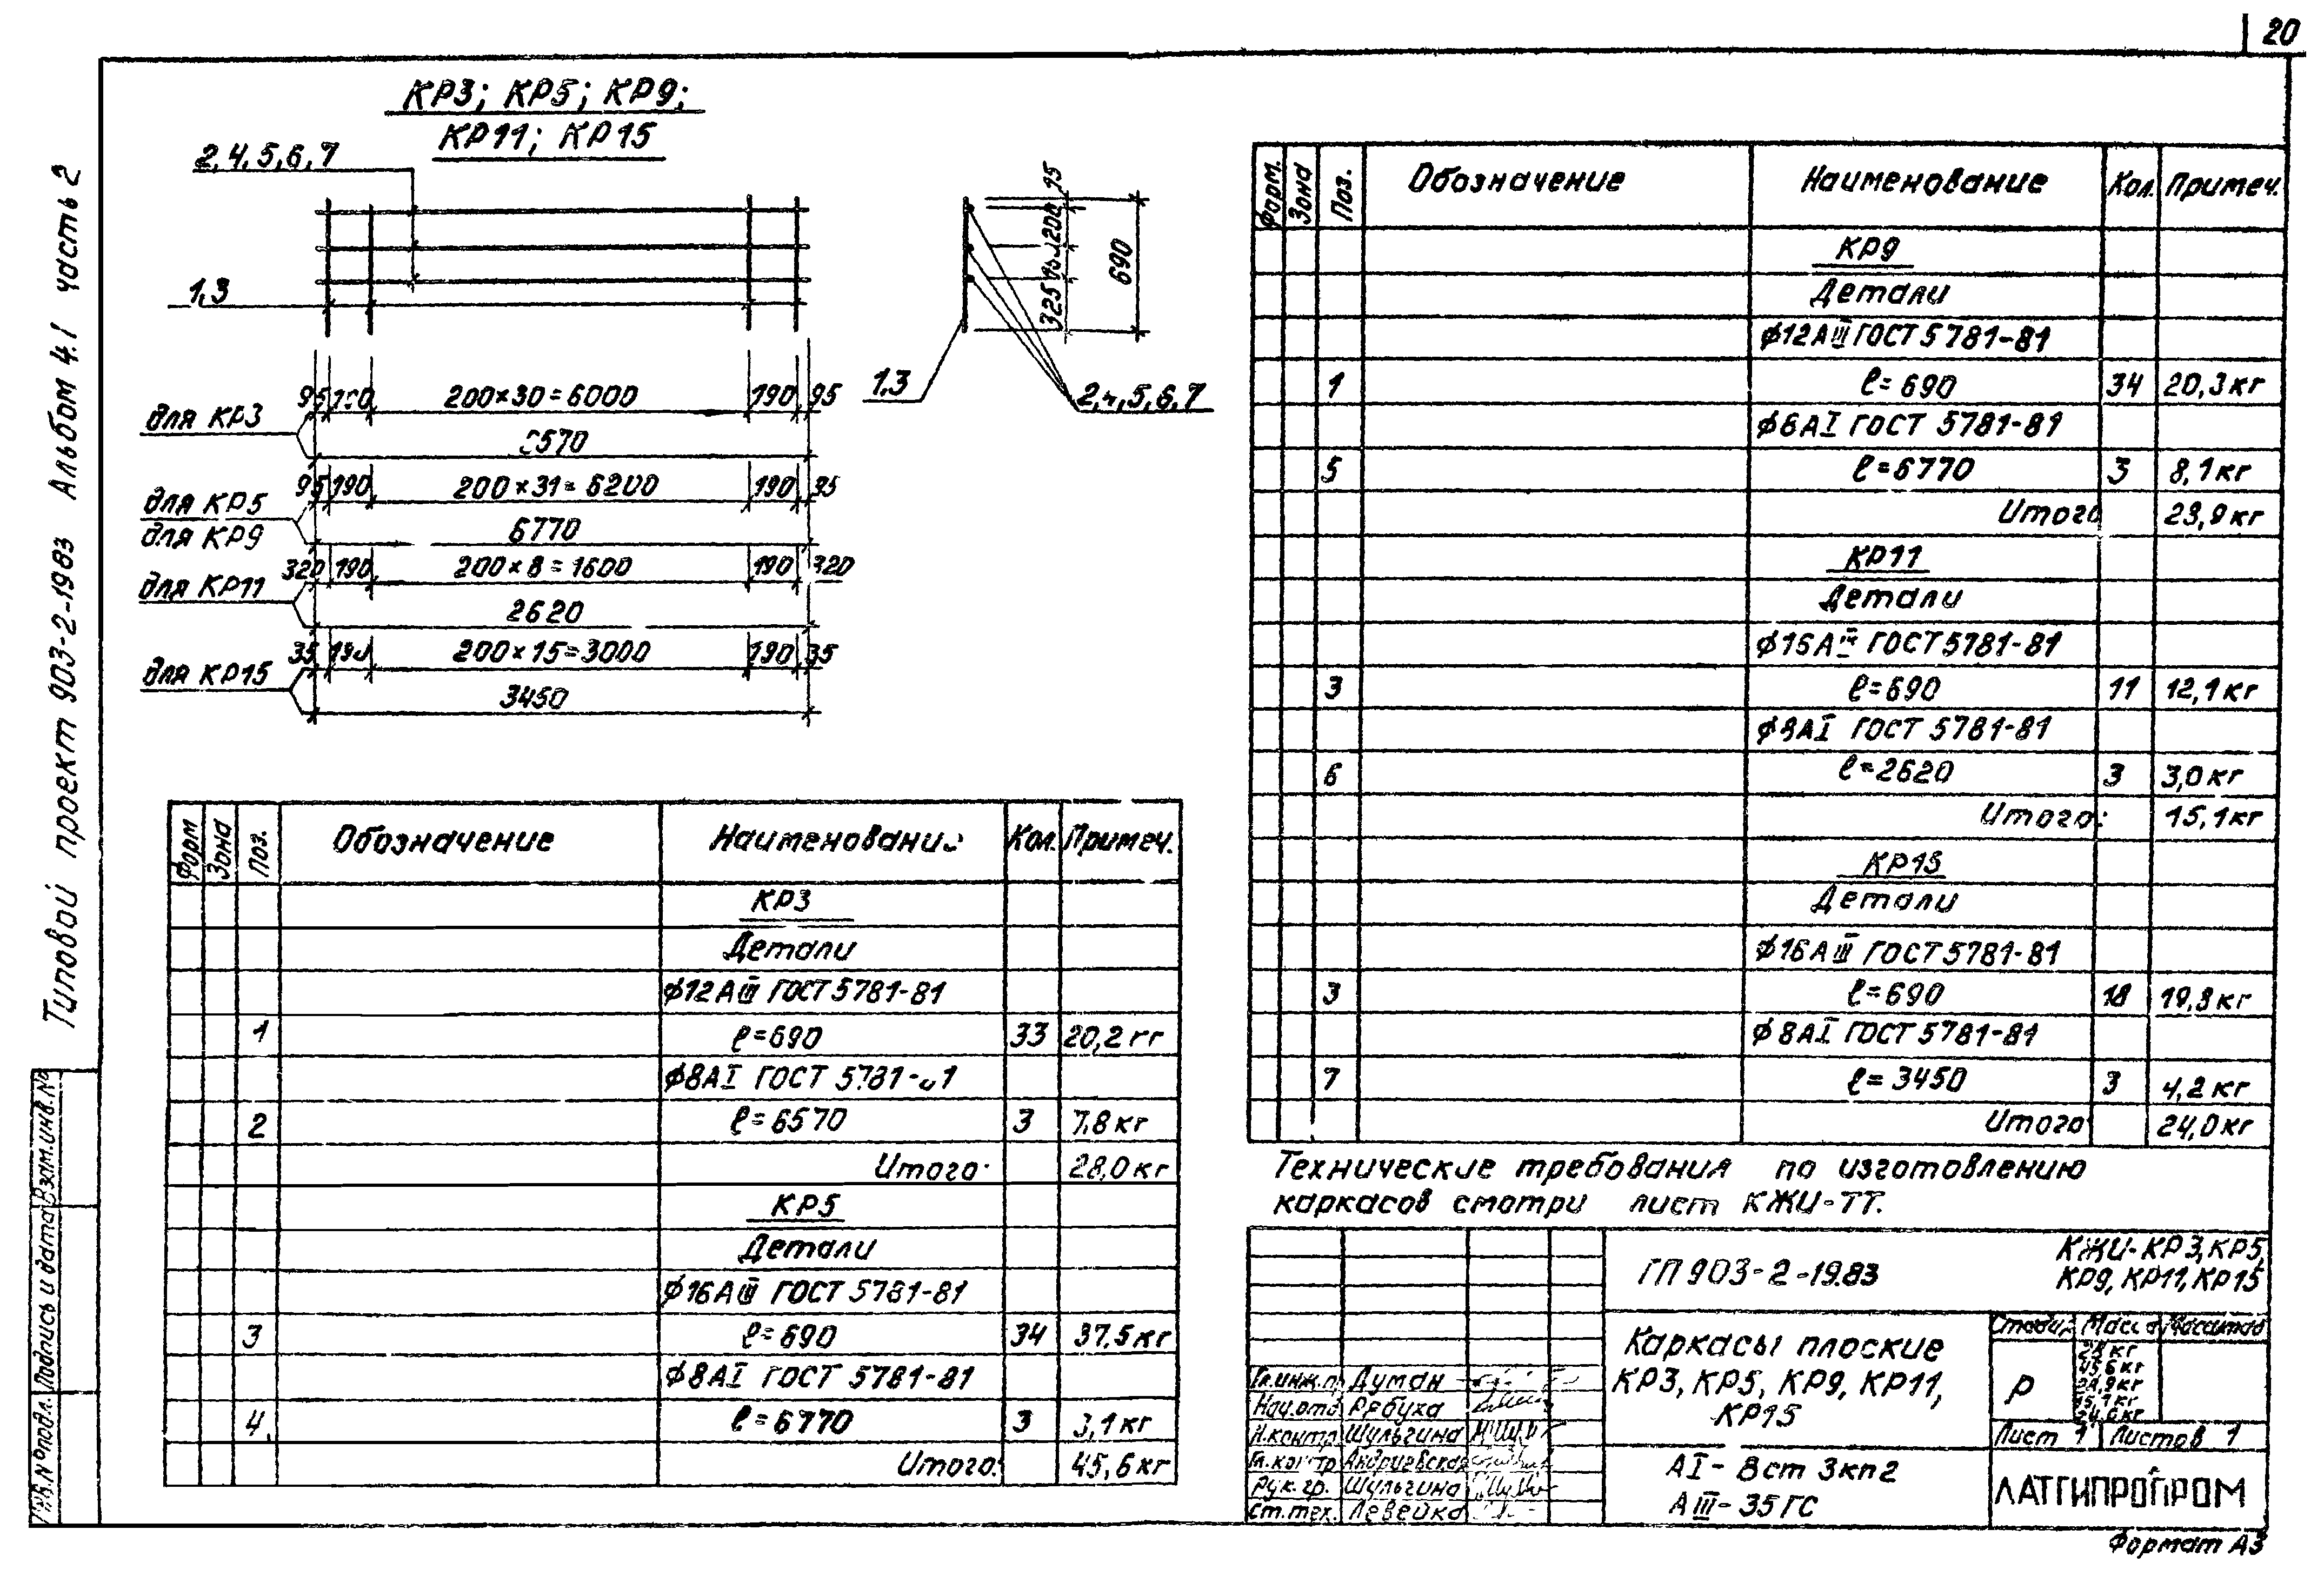 20
Типовой проект 903-2-1983 Альбом 4.1 часть 2
КР3; КР5; КР9;
КР11; КР15
2,4,5,6,7
1,3
95 190 200×30=6000 190 95
для КР3
6570
95 190 200×31=6200 190 95
для КР5
для КР9
6770
320 190 200×8=1600 190 320
для КР11
2620
35 190 200×15=3000 190 35
для КР15
3450
200
325
690
1,3
2,4,5,6,7
Форм Зона Поз. Обозначение Наименование Кол. Примеч.
КР3
Детали
ф12АIII ГОСТ 5781-81
1 ℓ=690 33 20,2 кг
ф8АI ГОСТ 5781-81
2 ℓ=6570 3 7,8 кг
Итого: 28,0 кг
КР5
Детали
ф16АIII ГОСТ 5781-81
3 ℓ=690 34 37,5 кг
ф8АI ГОСТ 5781-81
4 ℓ=6770 3 3,1 кг
Итого: 45,6 кг
Форм. Зона Поз. Обозначение Наименование Кол. Примеч.
КР9
Детали
ф12АIII ГОСТ 5781-81
1 ℓ=690 34 20,3 кг
ф6АI ГОСТ 5781-81
5 ℓ=6770 3 8,1 кг
Итого 23,9 кг
КР11
Детали
ф16АIII ГОСТ 5781-81
3 ℓ=690 11 12,1 кг
ф8АI ГОСТ 5781-81
6 ℓ=2620 3 3,0 кг
Итого: 15,1 кг
КР15
Детали
ф16АIII ГОСТ 5781-81
3 ℓ=690 18 19,8 кг
ф8АI ГОСТ 5781-81
7 ℓ=3450 3 4,2 кг
Итого 24,0 кг
Технические требования по изготовлению
каркасов смотри лист КЖИ-ТТ.
ТП 903-2-19.83
КЖИ-КР3, КР5,
КР9, КР11, КР15
Каркасы плоские
КР3, КР5, КР9, КР11,
КР15
Стадия Масса Масштаб
Р
28 кг
45,6 кг
15,1 кг
Лист 1 Листов 1
Гл.инж.п. Думан
Нач.отд Рябуха
Н.контр Шульгина
Гл.констр Андриевская
Рук.гр. Шульгина
Ст.тех. Левейка
АI - Вст 3кп2
АIII - 35ГС
ЛАТГИПРОПРОМ
Формат А3
Взам.инв.№
Подпись и дата
Инв.№ подл.